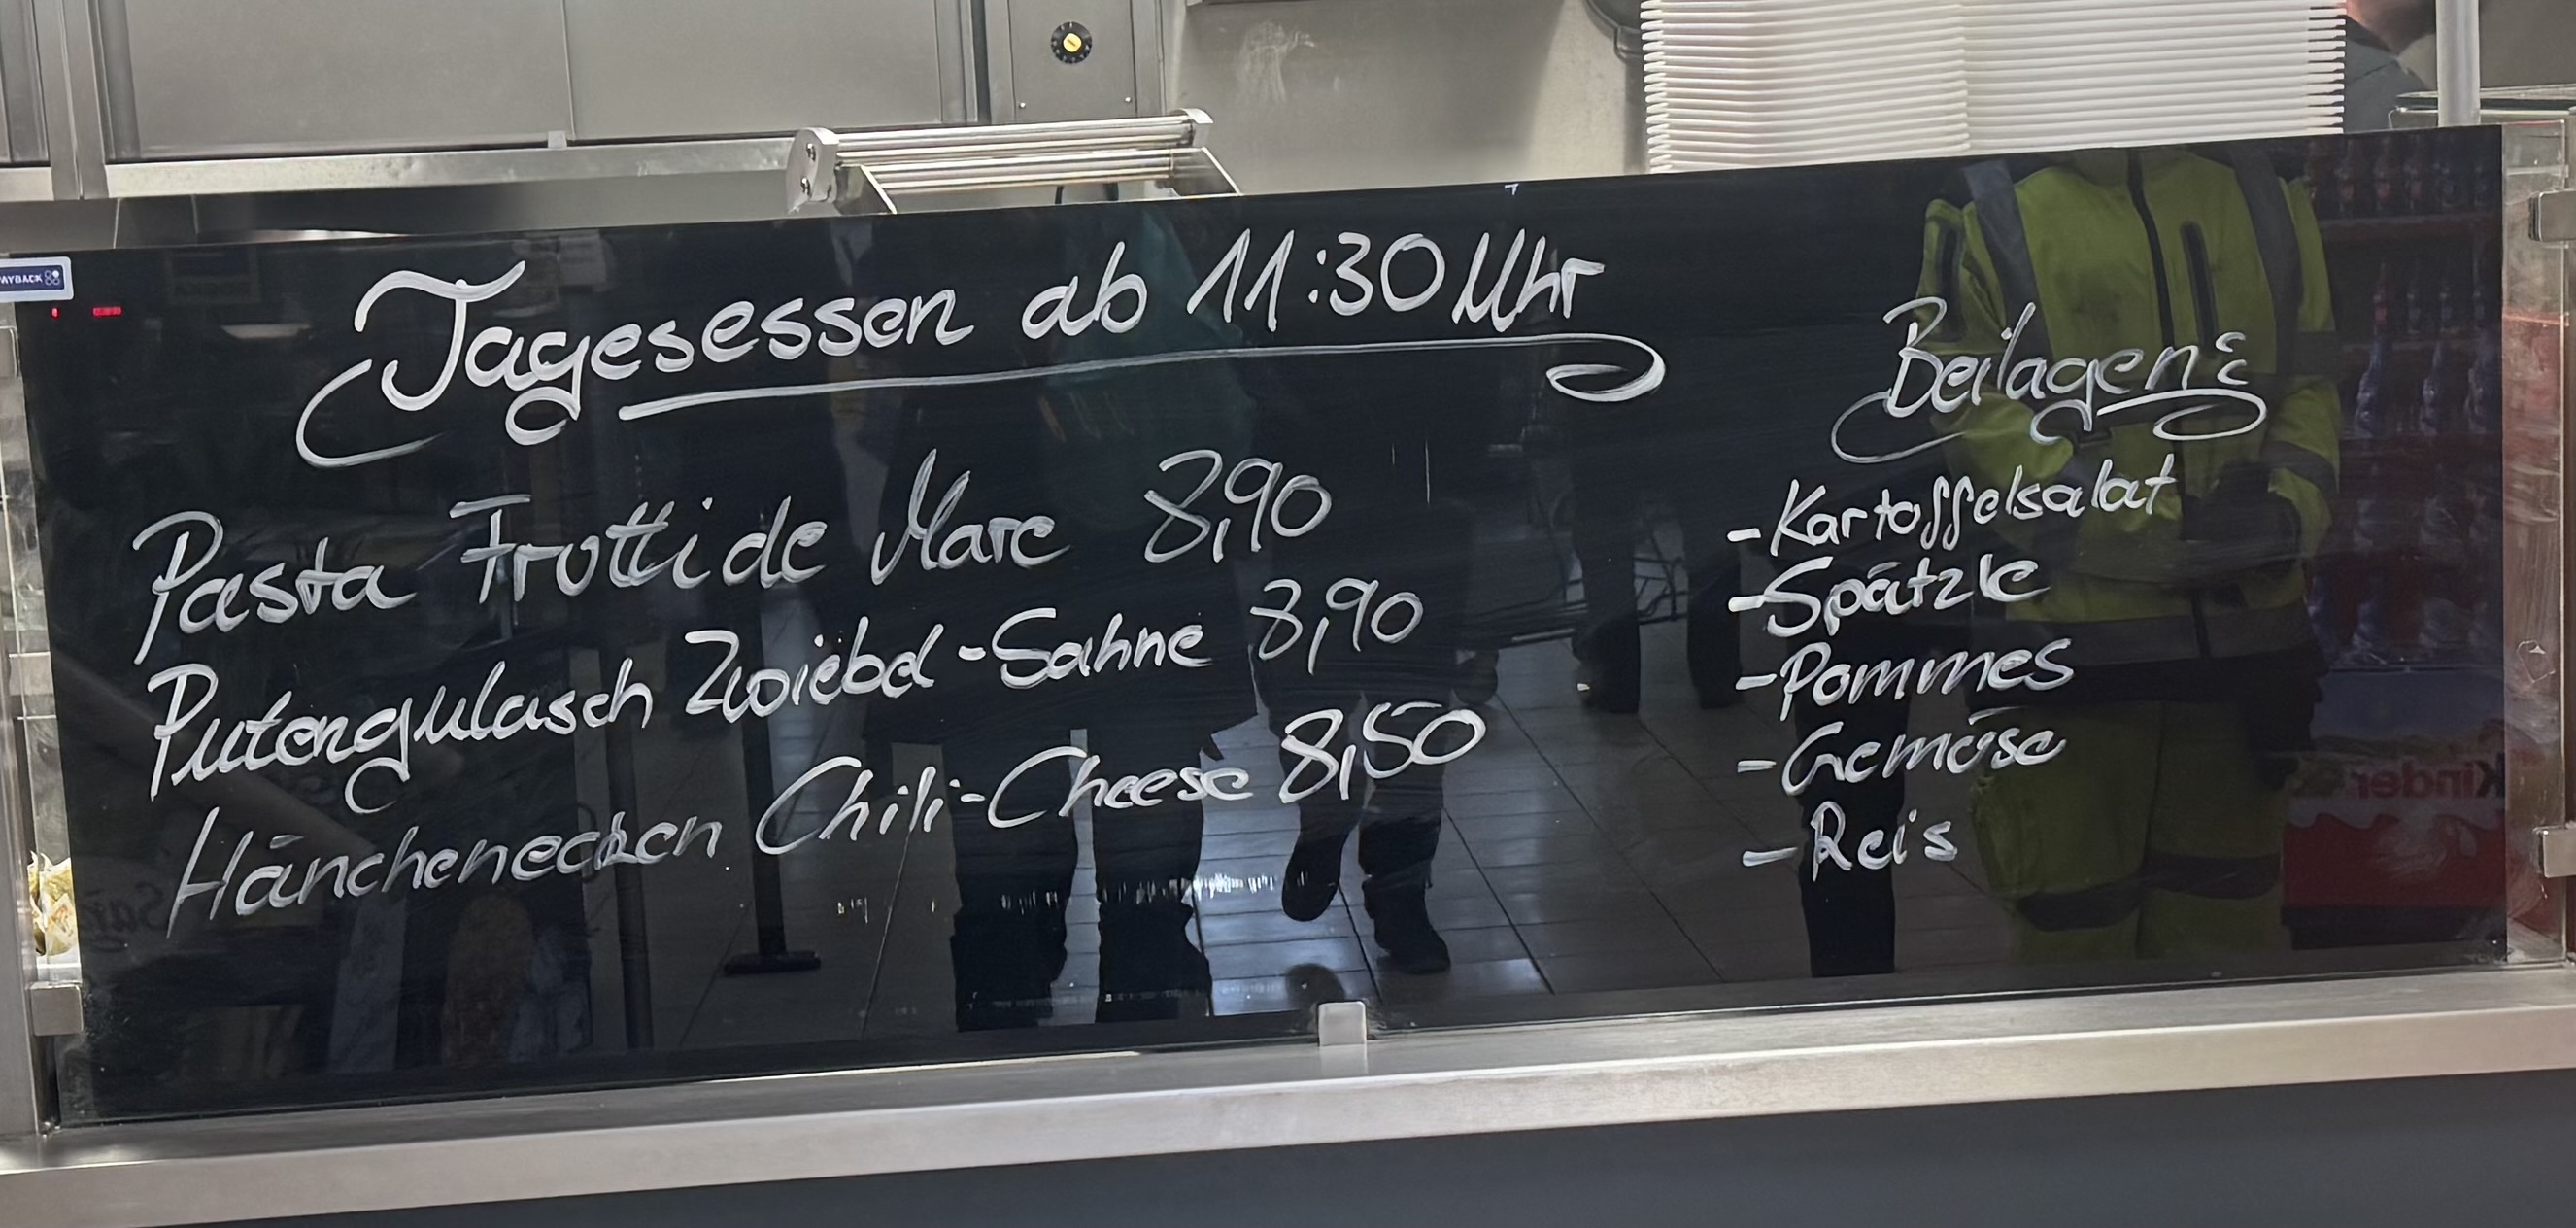 Tagesessen ab 11:30 Uhr
Pasta Frutti de Mare 8,90
Putengulasch Zwiebel-Sahne 8,90
Hänchenecken Chili-Cheese 8,50
Beilagen:
-Kartoffelsalat
-Spätzle
-Pommes
-Gemüse
-Reis
PAYBACK
Kinder